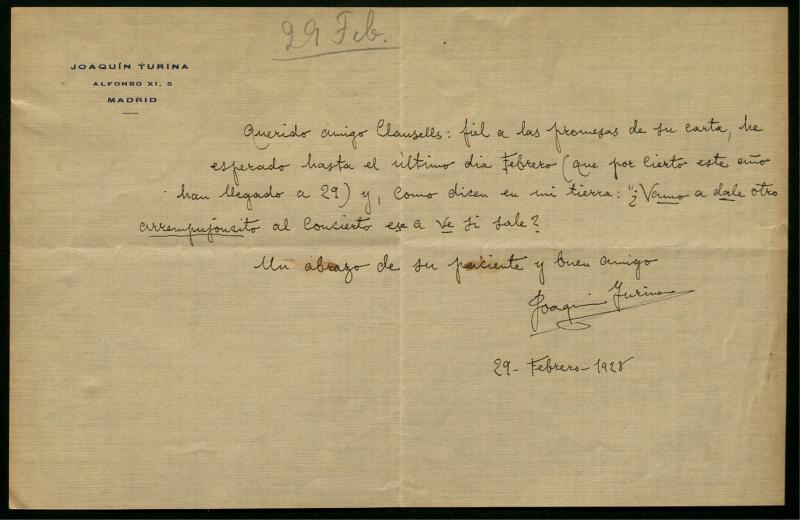 29 Feb.
JOAQUÍN TURINA
ALFONSO XI, 5
MADRID
Querido amigo Clausells: fiel a las promesas de su carta, he
esperado hasta el último día Febrero (que por cierto este año
han llegado a 29) y, como dicen en mi tierra: "¿Vamo a dale otro
arrempujónsito al Concierto ese a ve si sale?
Un abrazo de su paciente y buen amigo
Joaquín Turina
29- Febrero-1928